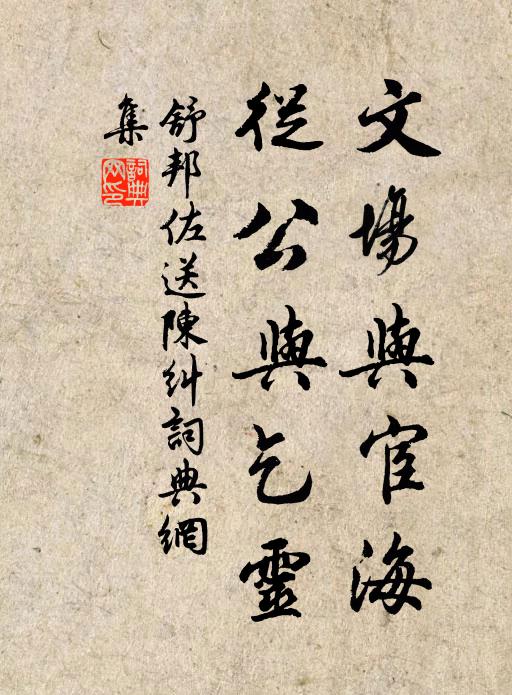 文場與宦海
從公與乞靈
舒邦佐送陳糾詞典網
集
詞典
網印